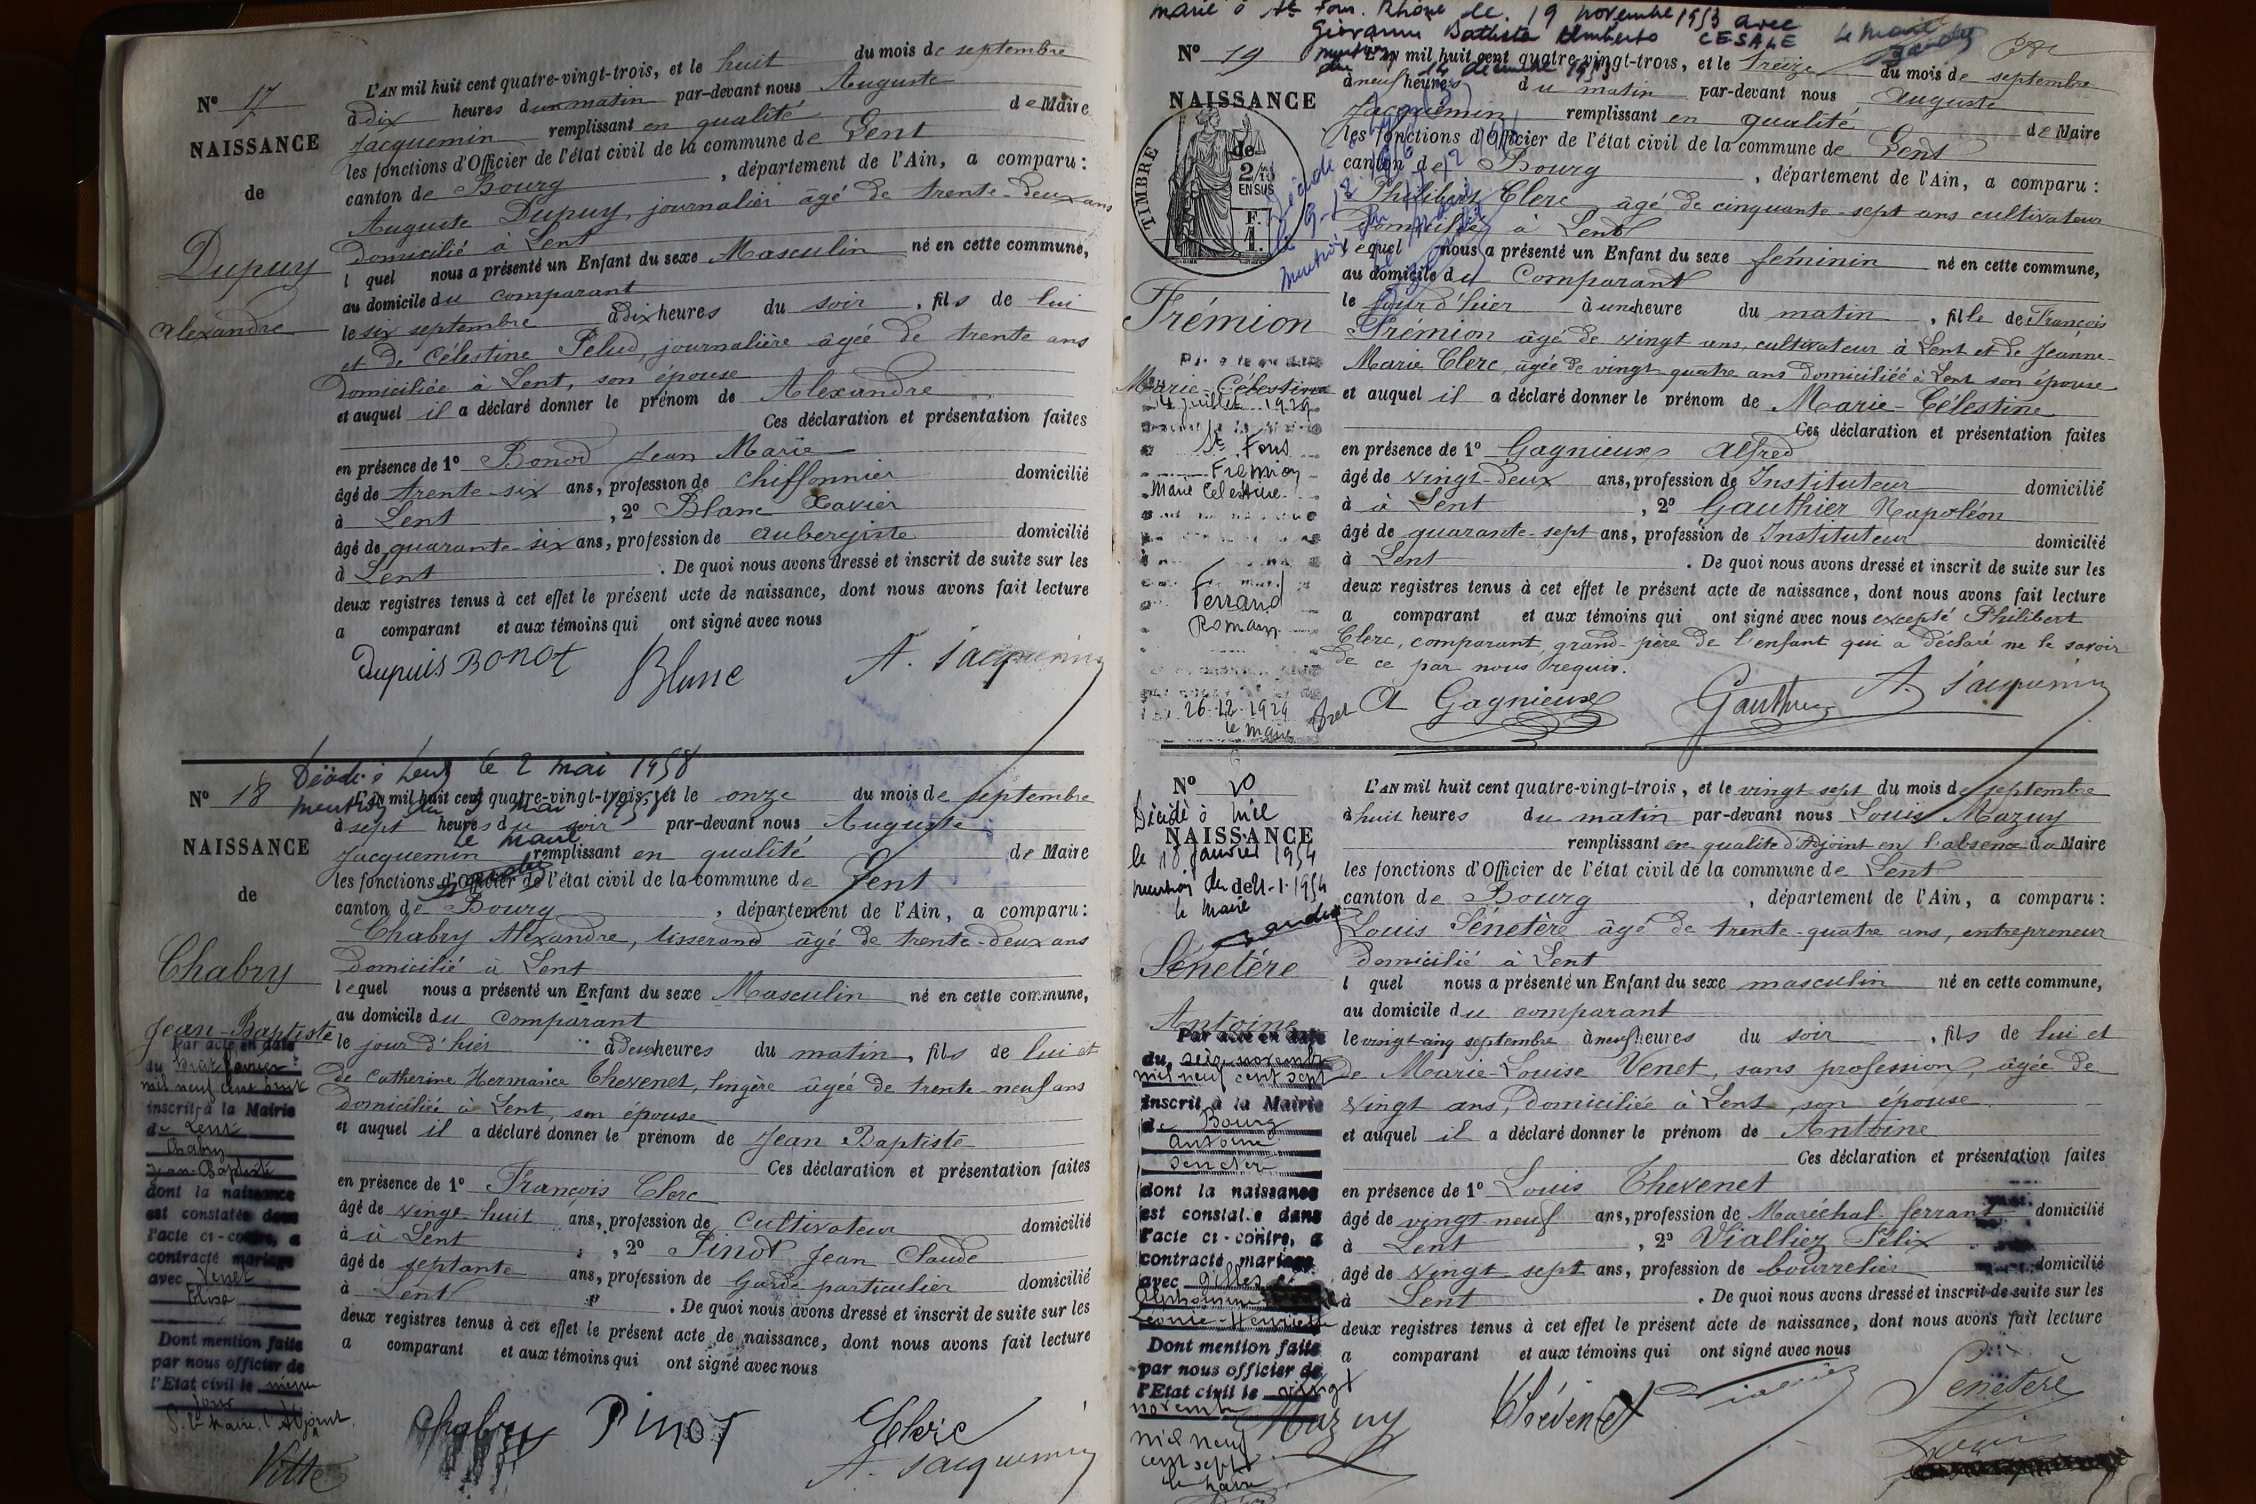 N° 17
NAISSANCE
de
Dupuy
Alexandre
L'AN mil huit cent quatre-vingt-trois, et le huit du mois de septembre
à dix heures du matin par-devant nous Auguste
Jacquemin remplissant en qualité de Maire
les fonctions d'Officier de l'état civil de la commune de Lent
canton de Bourg, département de l'Ain, a comparu:
Auguste Dupuy, journalier âgé de trente-deux ans
domicilié à Lent
l quel nous a présenté un Enfant du sexe Masculin né en cette commune,
au domicile du comparant
le six septembre à dix heures du soir, fils de lui
et de Célestine Pelud, journalière âgée de trente ans
domiciliée à Lent, son épouse
et auquel il a déclaré donner le prénom de Alexandre
Ces déclaration et présentation faites
en présence de 1° Bonod Jean Marie
âgé de trente-six ans, profession de chiffonnier domicilié
à Lent, 2° Blanc Xavier
âgé de quarante-six ans, profession de aubergiste domicilié
à Lent. De quoi nous avons dressé et inscrit de suite sur les
deux registres tenus à cet effet le présent acte de naissance, dont nous avons fait lecture
a comparant et aux témoins qui ont signé avec nous
Dupuis BONOT Blanc A. Jacquemin
Décédé à Lent le 2 mai 1958
mention du
le Maire
N° 18
NAISSANCE
de
Chabry
Jean-Baptiste
Par acte en date
du
mil neuf cent
inscrit à la Mairie
de Lent
Chabry
Jean-Baptiste
dont la naissance
est constatée dans
l'acte ci-contre, a
contracté mariage
avec Venet
Elisa
Dont mention faite
par nous officier de
l'Etat civil le même
jour
P. le Maire, l'Adjoint
Vitte
L'AN mil huit cent quatre-vingt-trois, et le onze du mois de septembre
à sept heures du soir par-devant nous Auguste
Jacquemin remplissant en qualité de Maire
les fonctions d'Officier de l'état civil de la commune de Lent
canton de Bourg, département de l'Ain, a comparu:
Chabry Alexandre, tisserand âgé de trente-deux ans
domicilié à Lent
lequel nous a présenté un Enfant du sexe Masculin né en cette commune,
au domicile du comparant
le jour d'hier à deux heures du matin, fils de lui et
de Catherine Hermance Thevenet, lingère âgée de trente-neuf ans
domiciliée à Lent, son épouse
et auquel il a déclaré donner le prénom de Jean Baptiste
Ces déclaration et présentation faites
en présence de 1° François Clerc
âgé de vingt-huit ans, profession de Cultivateur domicilié
à à Lent, 2° Pinot Jean Claude
âgé de septante ans, profession de Garde particulier domicilié
à Lent. De quoi nous avons dressé et inscrit de suite sur les
deux registres tenus à cet effet le présent acte de naissance, dont nous avons fait lecture
a comparant et aux témoins qui ont signé avec nous
Chabry PINOT Clerc
A. Jacquemin
marié à St Fons Rhône le 19 novembre 1953 avec
Giovanni Battista Umberto CESALE le Maire
mention du 14 décembre 1953
N° 19
NAISSANCE
de
TIMBRE
2/10
EN SUS
F.
1.
Frémion
Marie-Célestine
14 juillet 1929
St Fons
Frémion
Marie Célestine
Ferrand
Romain
26-12-1929
le Maire
L'AN mil huit cent quatre-vingt-trois, et le treize du mois de septembre
à neuf heures du matin par-devant nous Auguste
Jacquemin remplissant en qualité de Maire
les fonctions d'Officier de l'état civil de la commune de Lent
canton de Bourg, département de l'Ain, a comparu:
Philibert Clerc âgé de cinquante-sept ans cultivateur
domicilié à Lent
lequel nous a présenté un Enfant du sexe féminin né en cette commune,
au domicile du Comparant
le jour d'hier à une heure du matin, fille de François
Frémion âgé de vingt ans, cultivateur à Lent et de Jeanne-
Marie Clerc, âgée de vingt-quatre ans domiciliée à Lent son épouse
et auquel il a déclaré donner le prénom de Marie-Célestine
Ces déclaration et présentation faites
en présence de 1° Gagnieux Alfred
âgé de vingt-deux ans, profession de Instituteur domicilié
à à Lent, 2° Gauthier Napoléon
âgé de quarante-sept ans, profession de Instituteur domicilié
à Lent. De quoi nous avons dressé et inscrit de suite sur les
deux registres tenus à cet effet le présent acte de naissance, dont nous avons fait lecture
a comparant et aux témoins qui ont signé avec nous excepté Philibert
Clerc, comparant, grand-père de l'enfant qui a déclaré ne le savoir
de ce par nous requis.
A Gagnieux Gauthier A. Jacquemin
N° 20
Décédé à
NAISSANCE
le 18 janvier 1954
mention du 21-1-1954
le Maire
de
Sénetère
Antoine
Par acte en date
du seize novembre
mil neuf cent sept
inscrit à la Mairie
de Bourg
Antoine
Sénetère
dont la naissance
est constatée dans
l'acte ci-contre, a
contracté mariage
avec Gilles
Alphonsine
Léonie-Henriette
Dont mention faite
par nous officier de
l'Etat civil le vingt
novembre
mil neuf
cent sept
le Maire
L'AN mil huit cent quatre-vingt-trois, et le vingt sept du mois de septembre
à huit heures du matin par-devant nous Louis Mazuy
remplissant en qualité d'Adjoint en l'absence du Maire
les fonctions d'Officier de l'état civil de la commune de Lent
canton de Bourg, département de l'Ain, a comparu:
Louis Sénetère âgé de trente-quatre ans, entrepreneur
domicilié à Lent
l quel nous a présenté un Enfant du sexe masculin né en cette commune,
au domicile du comparant
le vingt cinq septembre à neuf heures du soir, fils de lui et
de Marie-Louise Venet, sans profession, âgée de
vingt ans, domiciliée à Lent, son épouse
et auquel il a déclaré donner le prénom de Antoine
Ces déclaration et présentation faites
en présence de 1° Louis Thevenet
âgé de vingt neuf ans, profession de Maréchal-ferrant domicilié
à Lent, 2° Vialliez Félix
âgé de vingt-sept ans, profession de bourrelier domicilié
à Lent. De quoi nous avons dressé et inscrit de suite sur les
deux registres tenus à cet effet le présent acte de naissance, dont nous avons fait lecture
a comparant et aux témoins qui ont signé avec nous
Mazuy Thévenet Sénetère
Louis